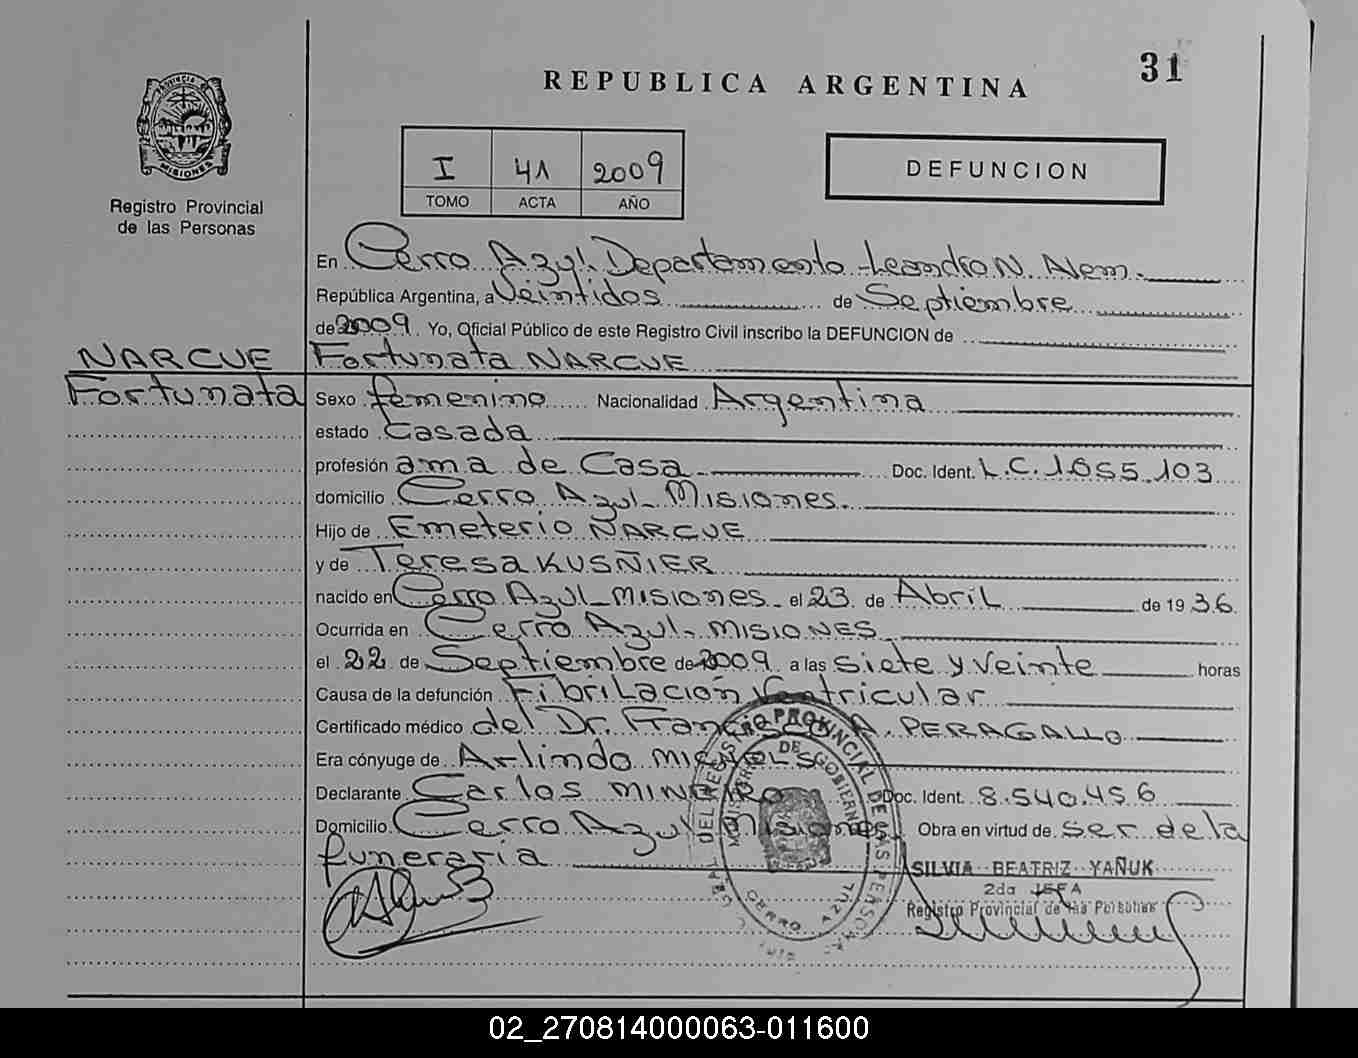 31
REPUBLICA ARGENTINA
PROVINCIA
MISIONES
Registro Provincial
de las Personas
I 41 2009
TOMO ACTA AÑO
DEFUNCION
En Cerro Azul. Departamento Leandro N. Alem.
República Argentina, a Veintidos de Septiembre
de 2009. Yo, Oficial Público de este Registro Civil inscribo la DEFUNCION de
NARCUE Fortunata NARCUE
Fortunata Sexo femenino Nacionalidad Argentina
estado Casada
profesión ama de Casa Doc. Ident. L.C. 1.655.103
domicilio Cerro Azul - Misiones.
Hijo de Emeterio ÑARCUE
y de Teresa KUSÑIER
nacido en Cerro Azul - Misiones - el 23 de Abril de 1936.
Ocurrida en Cerro Azul - MISIONES
el 22 de Septiembre de 2009 a las siete y Veinte horas
Causa de la defunción Fibrilación Ventricular
Certificado médico del Dr. Francisco A. PERAGALLO
Era cónyuge de Arlindo
Declarante Carlos Doc. Ident. 8.540.456
Domicilio Cerro Azul Misiones. Obra en virtud de ser de la
funeraria
SILVIA BEATRIZ YAÑUK
2da JEFA
Registro Provincial de las Personas
DEL REGISTRO PROVINCIAL DE LAS PERSONAS
MINISTERIO DE GOBIERNO
CERRO AZUL
02_270814000063-011600